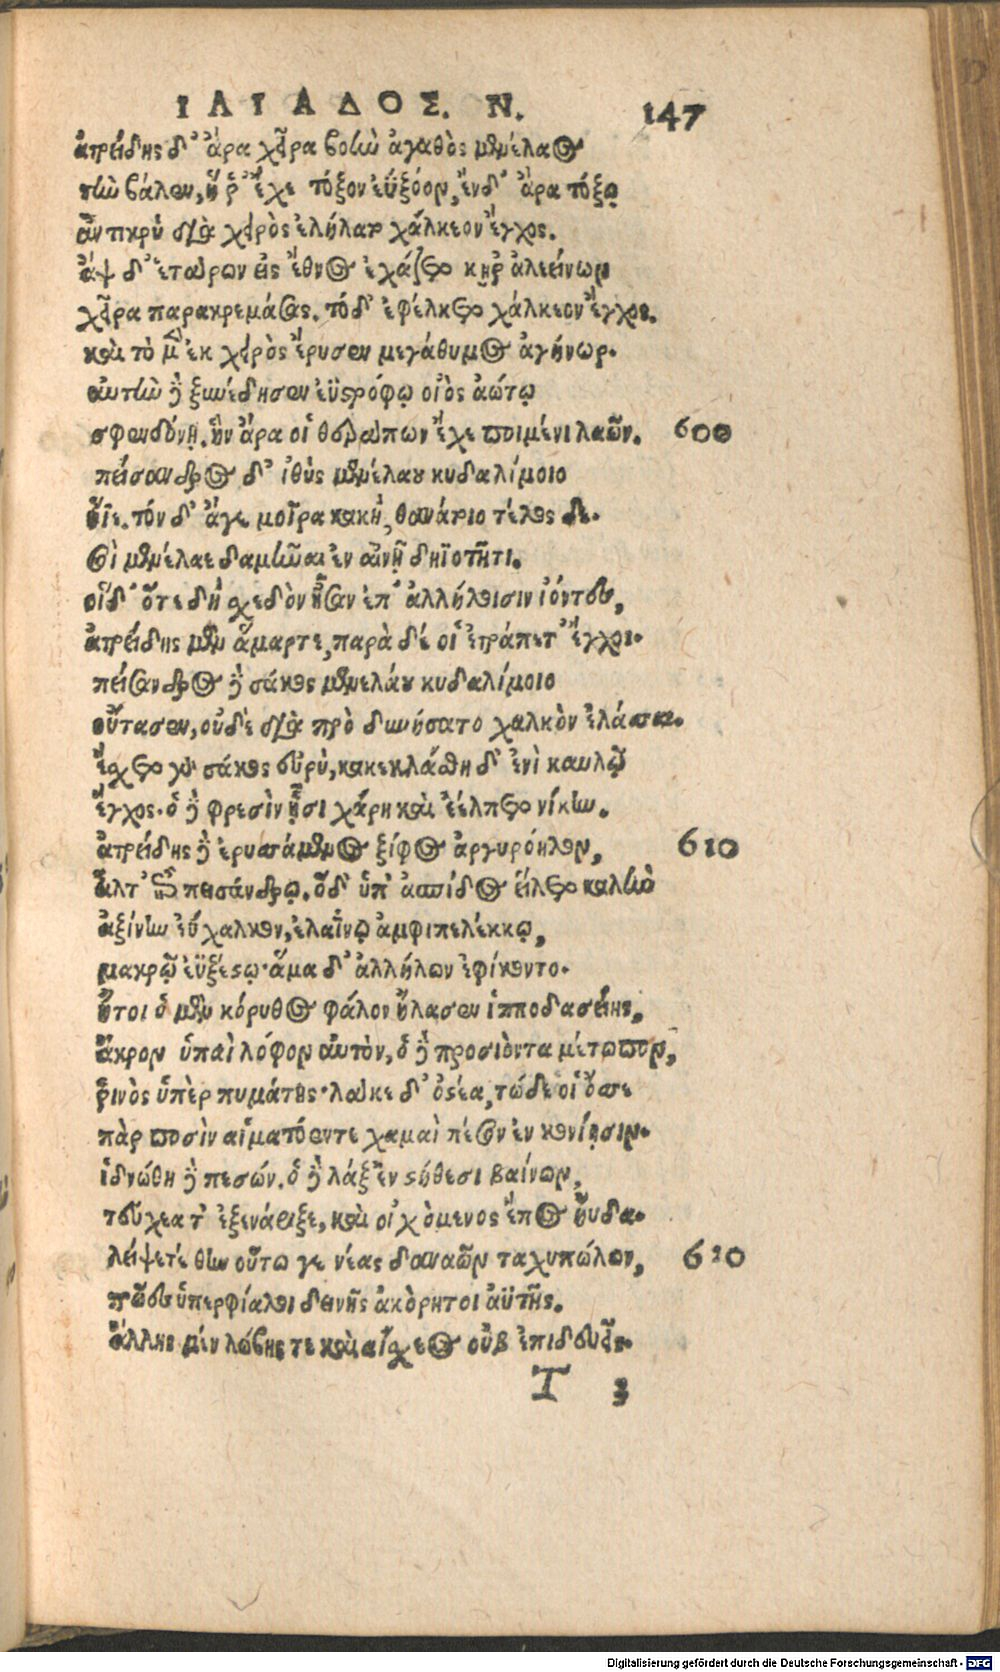 ΙΛΙΑΔΟΣ. Ν. 147
ἀτρείδης δ' ἄρα χεῖρα βοὴν ἀγαθὸς μενέλαος
τὴν βάλεν, ἥ ῥ' ἔχε τόξον ἐΰξοον, ἐν δ' ἄρα τόξῳ
ἀντικρὺ διὰ χειρὸς ἐλήλατο χάλκεον ἔγχος.
ἂψ δ' ἑταίρων εἰς ἔθνος ἐχάζετο κῆρ ἀλεείνων
χεῖρα παρακρεμάσας. τό δ' ἐφέλκετο χάλκεον ἔγχος.
καὶ τὸ μὲν ἐκ χειρὸς ἔρυσεν μεγάθυμος ἀγήνωρ.
αὐτὴν δὲ ξυνέδησεν ἐϋστρόφῳ οἰὸς ἀώτῳ
σφενδόνῃ. ἣν ἄρα οἱ θεράπων ἔχε ποιμένι λαῶν. 600
πείσανδρος δ' ἰθὺς μενέλαου κυδαλίμοιο
ἤϊε. τόν δ' ἄγε μοῖρα κακὴ, θανάτοιο τέλος δε.
σοὶ μενέλαε δαμῆναι ἐν αἰνῇ δηϊοτῆτι.
οἵδ' ὅτε δὴ σχεδὸν ἦσαν ἐπ' ἀλλήλοισιν ἰόντες,
ἀτρείδης μὲν ἅμαρτε, παρὰ δέ οἱ ἐτράπετ' ἔγχος.
πείσανδρος δὲ σάκος μενελάου κυδαλίμοιο
οὔτασεν, οὐδὲ διὰ πρὸ δυνήσατο χαλκὸν ἐλάσσαι.
ἔσχετο γὰρ σάκος εὐρὺ, κατεκλάσθη δ' ἐνὶ καυλῷ
ἔγχος. ὁ δὲ φρεσὶν ᾗσι χάρη καὶ ἐέλπετο νίκην.
ἀτρείδης δὲ ἐρυσσάμενος ξίφος ἀργυρόηλον, 610
ἆλτ' ἐπὶ πεισάνδρῳ. ὁδ' ὑπ' ἀσπίδος εἵλετο καλὴν
ἀξίνην εὔχαλκον, ἐλαΐνῳ ἀμφιπελέκκῳ,
μακρῷ ἐϋξέστῳ. ἅμα δ' ἀλλήλων ἐφίκοντο.
ἤτοι ὁ μὲν κόρυθος φάλον ἤλασεν ἱπποδασείης,
ἄκρον ὑπαὶ λόφον αὐτὸν, ὁ δὲ προσιόντα μέτωπον,
ῥινὸς ὕπερ πυμάτης. λάκε δ' ὀστέα, τώδε οἱ ὄσσε
πὰρ ποσὶν αἱματόεντε χαμαὶ πέσον ἐν κονίῃσιν.
ἰδνώθη δὲ πεσών. ὁ δὲ λὰξ ἐν στήθεσι βαίνων,
τεύχεα τ' ἐξενάριξε, καὶ εὐχόμενος ἔπος ηὔδα.
λείψετέ θην οὕτω γε νέας δαναῶν ταχυπώλων, 620
τρῶες ὑπερφίαλοι δεινῆς ἀκόρητοι ἀϋτῆς.
ἄλλης μὲν λώβης τε καὶ αἴσχεος οὐκ ἐπιδευεῖς.
T 3
Digitalisierung gefördert durch die Deutsche Forschungsgemeinschaft - DFG